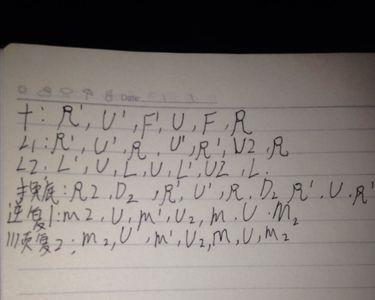 Date
十: R', U', F', U, F, R
L1: R', U', R, U', R', U2, R
L2: L', U, L, U, L', U2, L.
换底: R2, D2, R', U', R, D2, R', U, R'
逆复1: m2, U, m', U2, m, U, M2
顺复2: m2, U', m', U2, m, U, m2